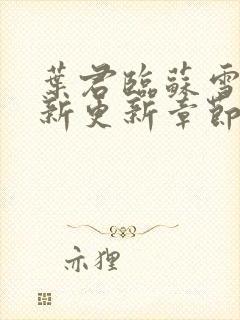 葉君臨蘇雪
新更新章節
亦狸